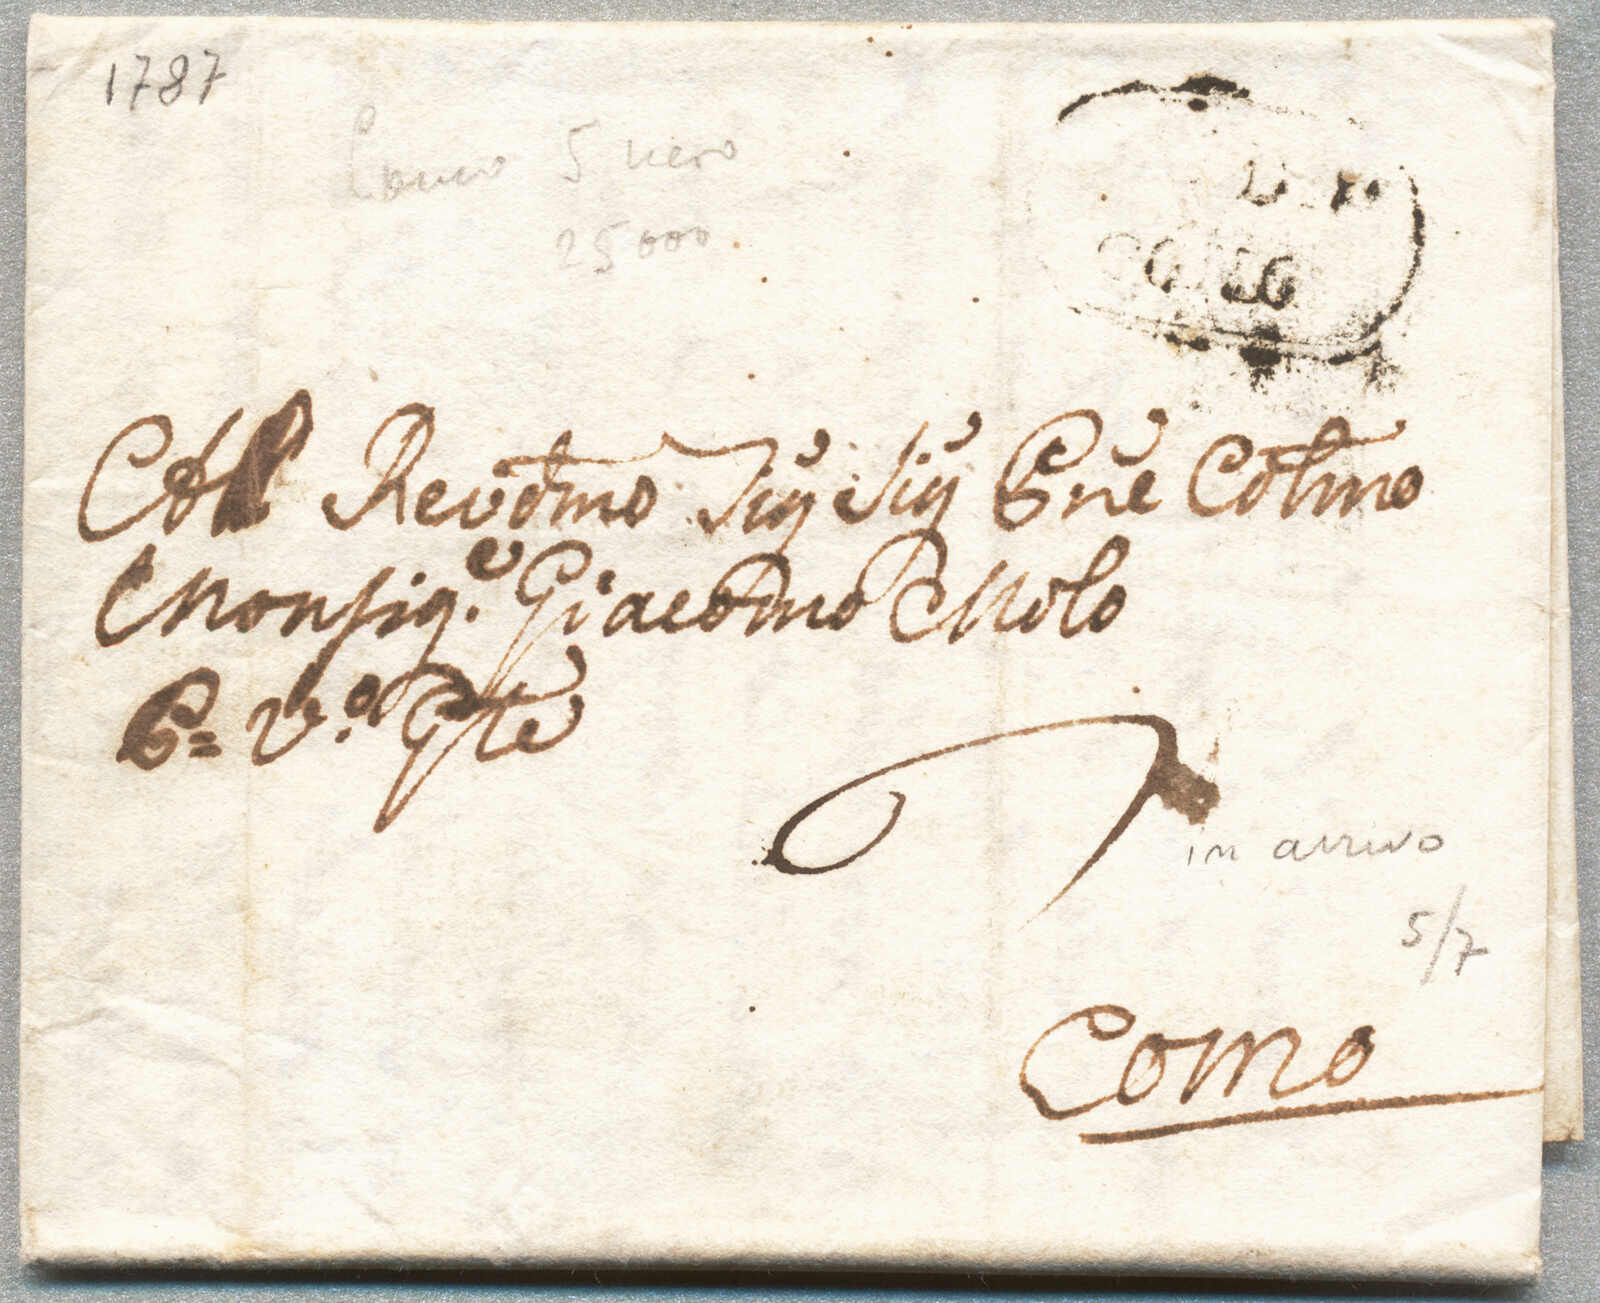 1787
Como 5 nero
25000
DI
COMO
All Revdmo Sig Sig Pne Colmo
Monsig.e Giacomo Molo
P= V.o Gte
in arrivo
5/7
Como